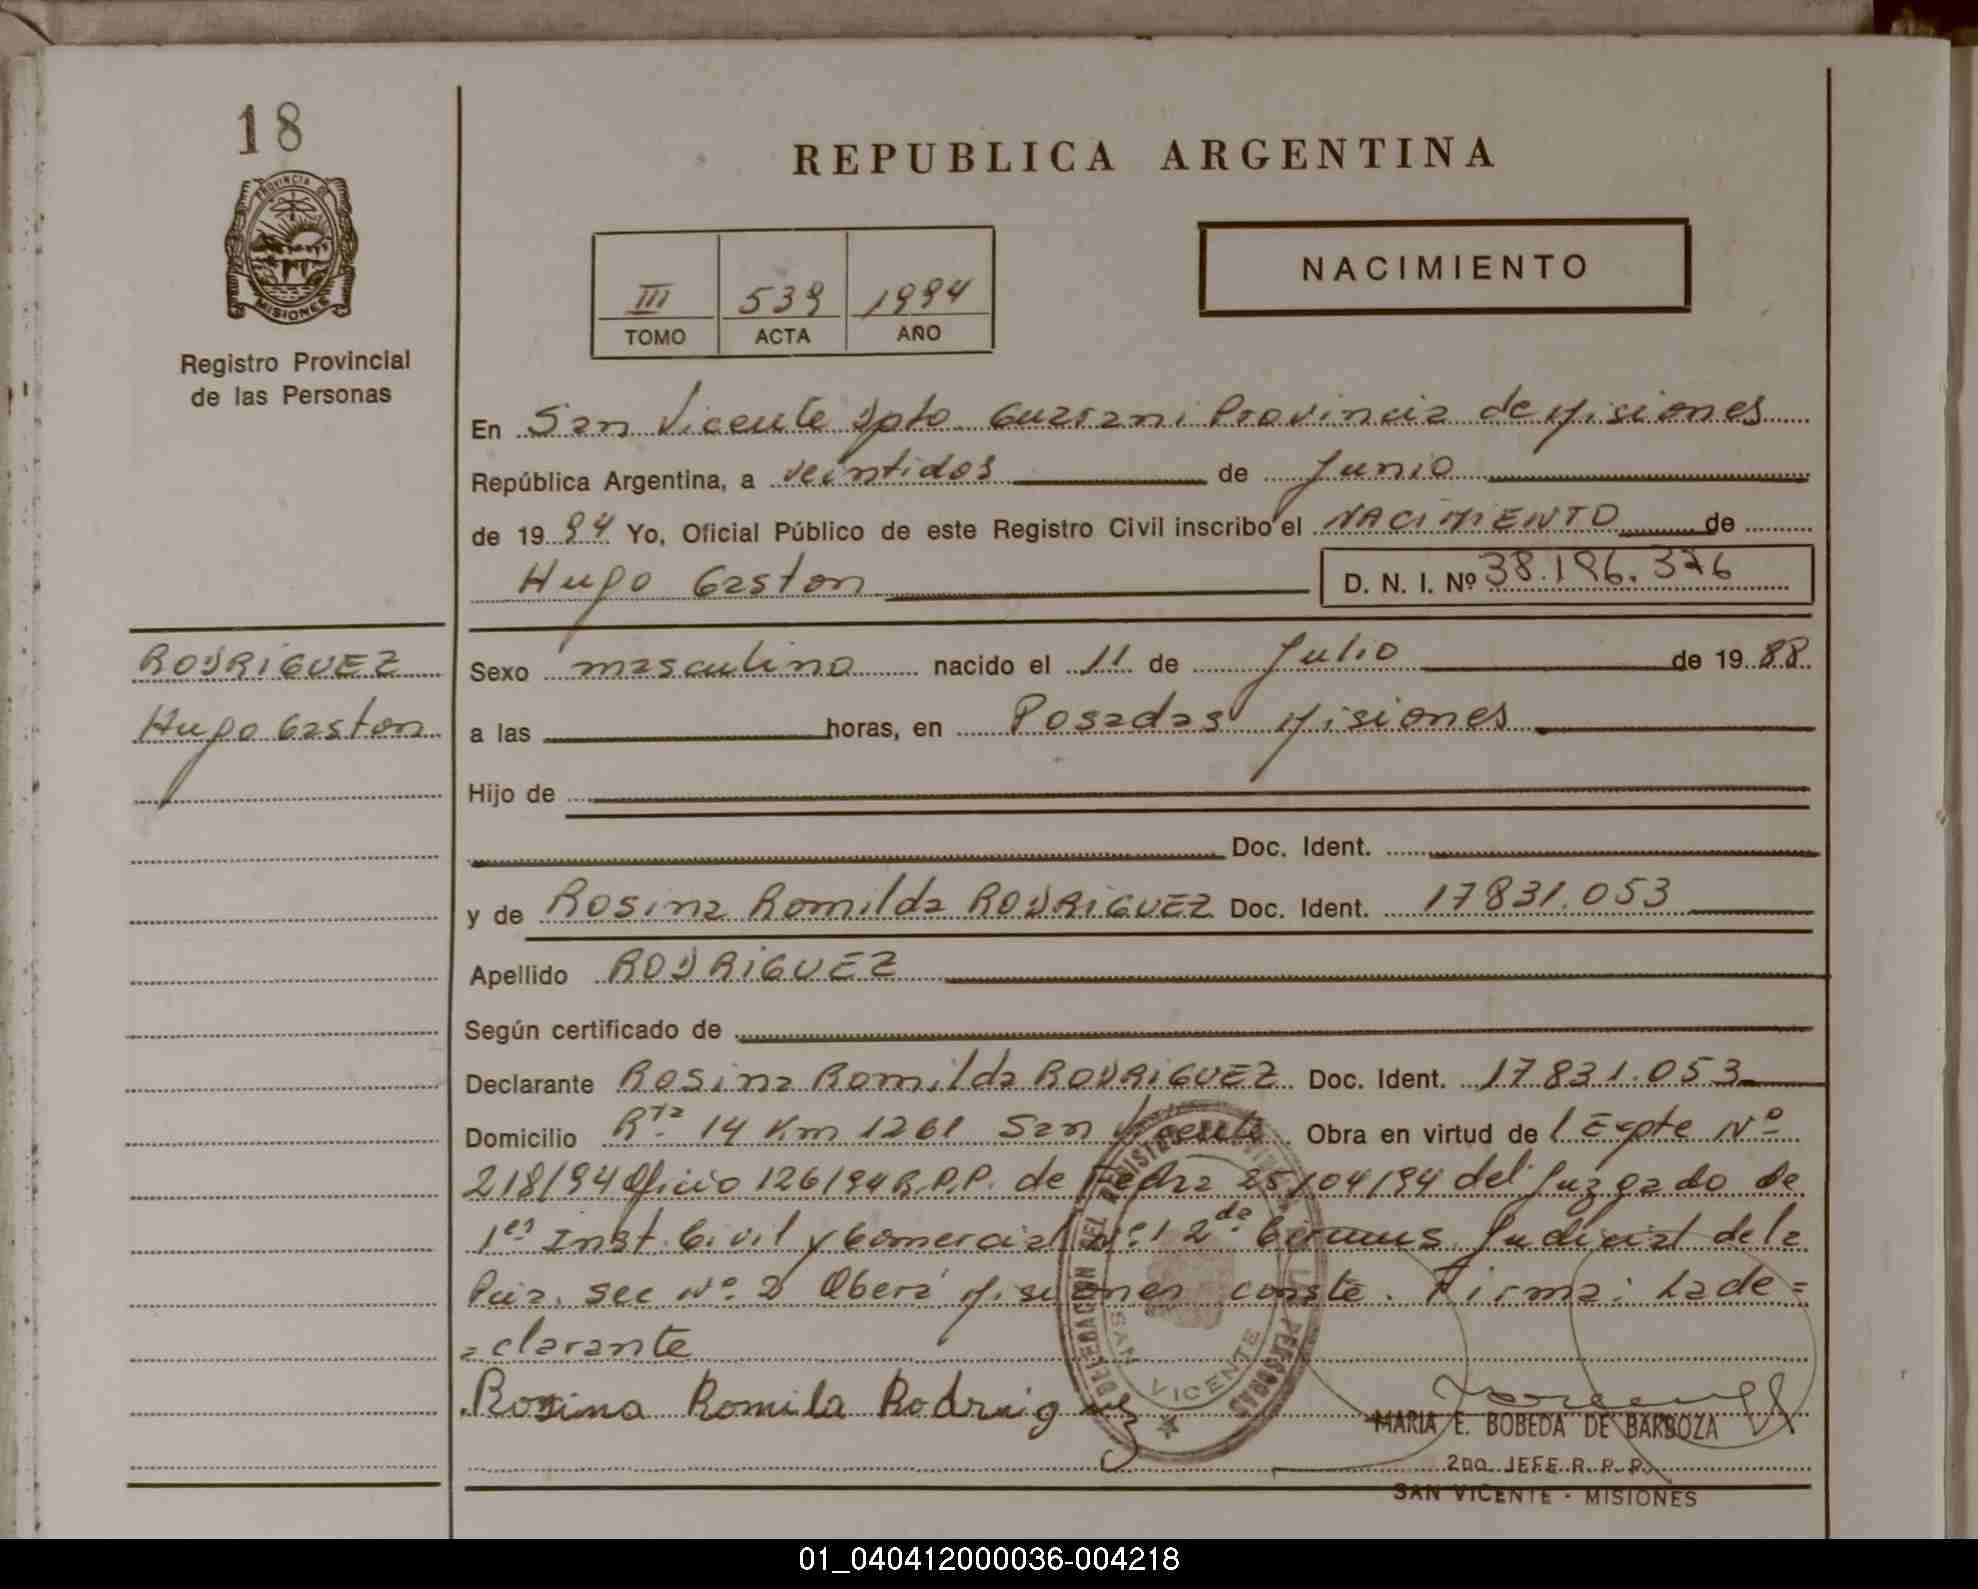 18
PROVINCIA DE
MISIONES
Registro Provincial
de las Personas
REPUBLICA ARGENTINA
III 539 1994
TOMO ACTA AÑO
NACIMIENTO
En San Vicente Dpto. Guarani Provincia de Misiones
República Argentina, a veintidos de Junio
de 1994 Yo, Oficial Público de este Registro Civil inscribo el NACIMIENTO de
Hugo Gaston D. N. I. Nº 38.196.376
RODRIGUEZ
Hugo Gaston
Sexo masculino nacido el 11 de Julio de 1988
a las horas, en Posadas Misiones
Hijo de
Doc. Ident.
y de Rosina Romilda RODRIGUEZ Doc. Ident. 17831.053
Apellido RODRIGUEZ
Según certificado de
Declarante Rosina Romilda RODRIGUEZ Doc. Ident. 17831.053
Domicilio Rta. 14 Km 1261 San Vicente Obra en virtud del Expte Nº
218/94 Oficio 126/94 R.P.P. de Fecha 25/04/94 del Juzgado de
1er Inst. Civil y Comercial Nº 1 2da Circuns. Judicial de la
Pcia. Sec Nº 2 Oberá Misiones conste. Firma: La de=
=clarante
Rosina Romila Rodriguez
DELEGACION DEL REGISTRO PROVINCIAL DE LAS PERSONAS
SAN VICENTE
MARIA E. BOBEDA DE BARBOZA
2DO. JEFE R. P. P.
SAN VICENTE - MISIONES
01_040412000036-004218